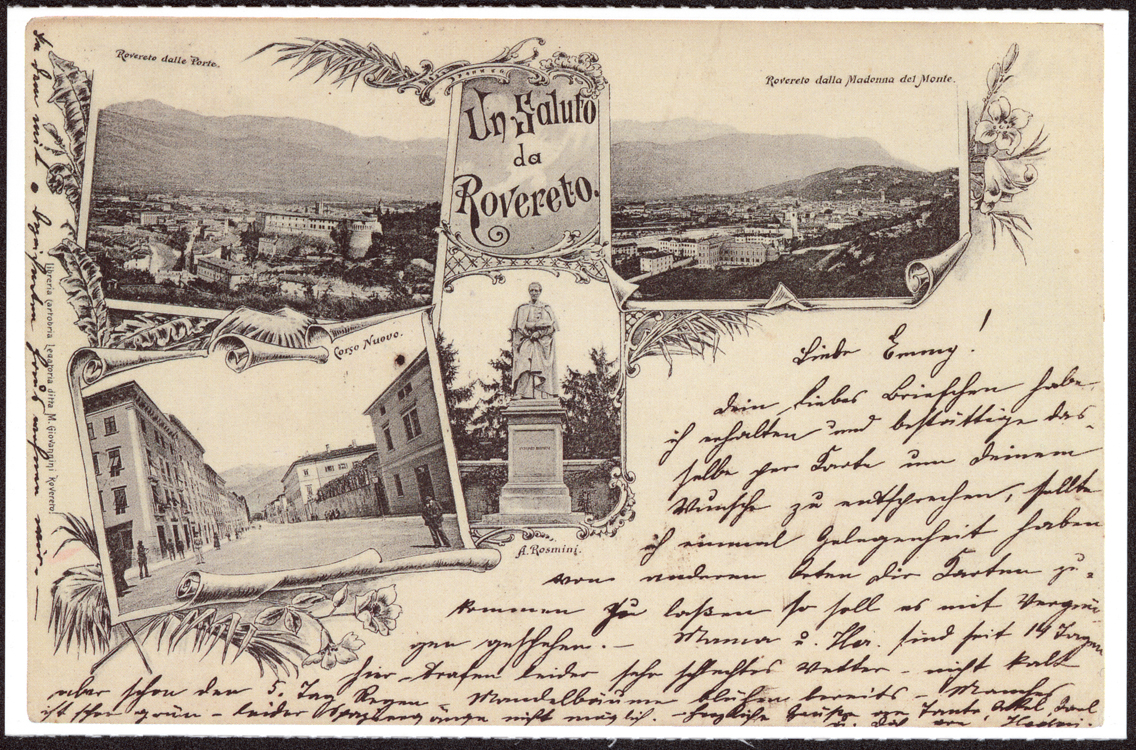 Rovereto dalle Porte.
Rovereto dalla Madonna del Monte.
Un Saluto
da
Rovereto.
Corso Nuovo.
A. Rosmini.
Libreria Cartoleria Legatoria ditta M. Giovannini Rovereto.
Liebe Emmy!
Dein liebes Briefchen habe
ich erhalten und bestättige das-
selbe per Karte um Deinem
Wunsche zu entsprechen, sollte
ich einmal Gelegenheit haben
von anderen Orten Dir Karten zu-
kommen zu laßen so soll es mit Vergnü
gen geschehen. – Mama u. sind seit 14 Tagen
hier trafen leider sehr schlechtes Wetter – nicht kalt
aber schon den 5. Tag Regen – Mandelbäume blühen bereits – Manches
ist schon grün – leider Spaziergänge nicht möglich. – Herzliche Grüße an Tante, Onkel,
u. Dich von